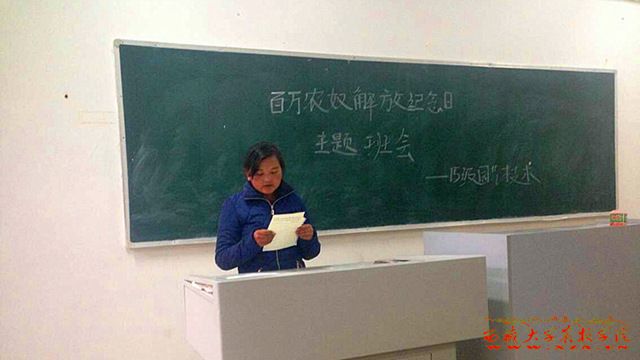 百万农奴解放纪念日
主题班会
——15级园艺技术
西藏大学农牧学院